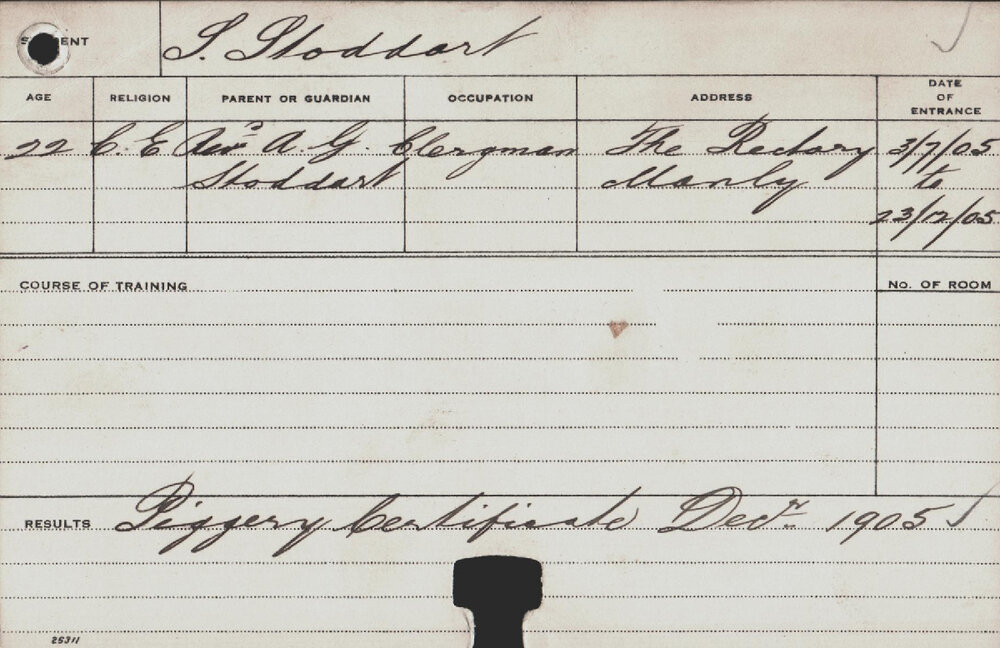 STUDENT S. Stoddart
AGE RELIGION PARENT OR GUARDIAN OCCUPATION ADDRESS DATE OF ENTRANCE
22 C. E Rev A. G. Clergman The Rectory 3/7/05
Stoddart Manly to
23/12/05
COURSE OF TRAINING No. OF ROOM
RESULTS Piggery Certificate Decr 1905
25311